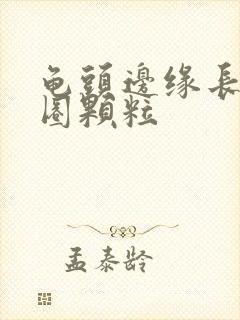 龟頭邊缘長
圈顆粒
孟泰龄